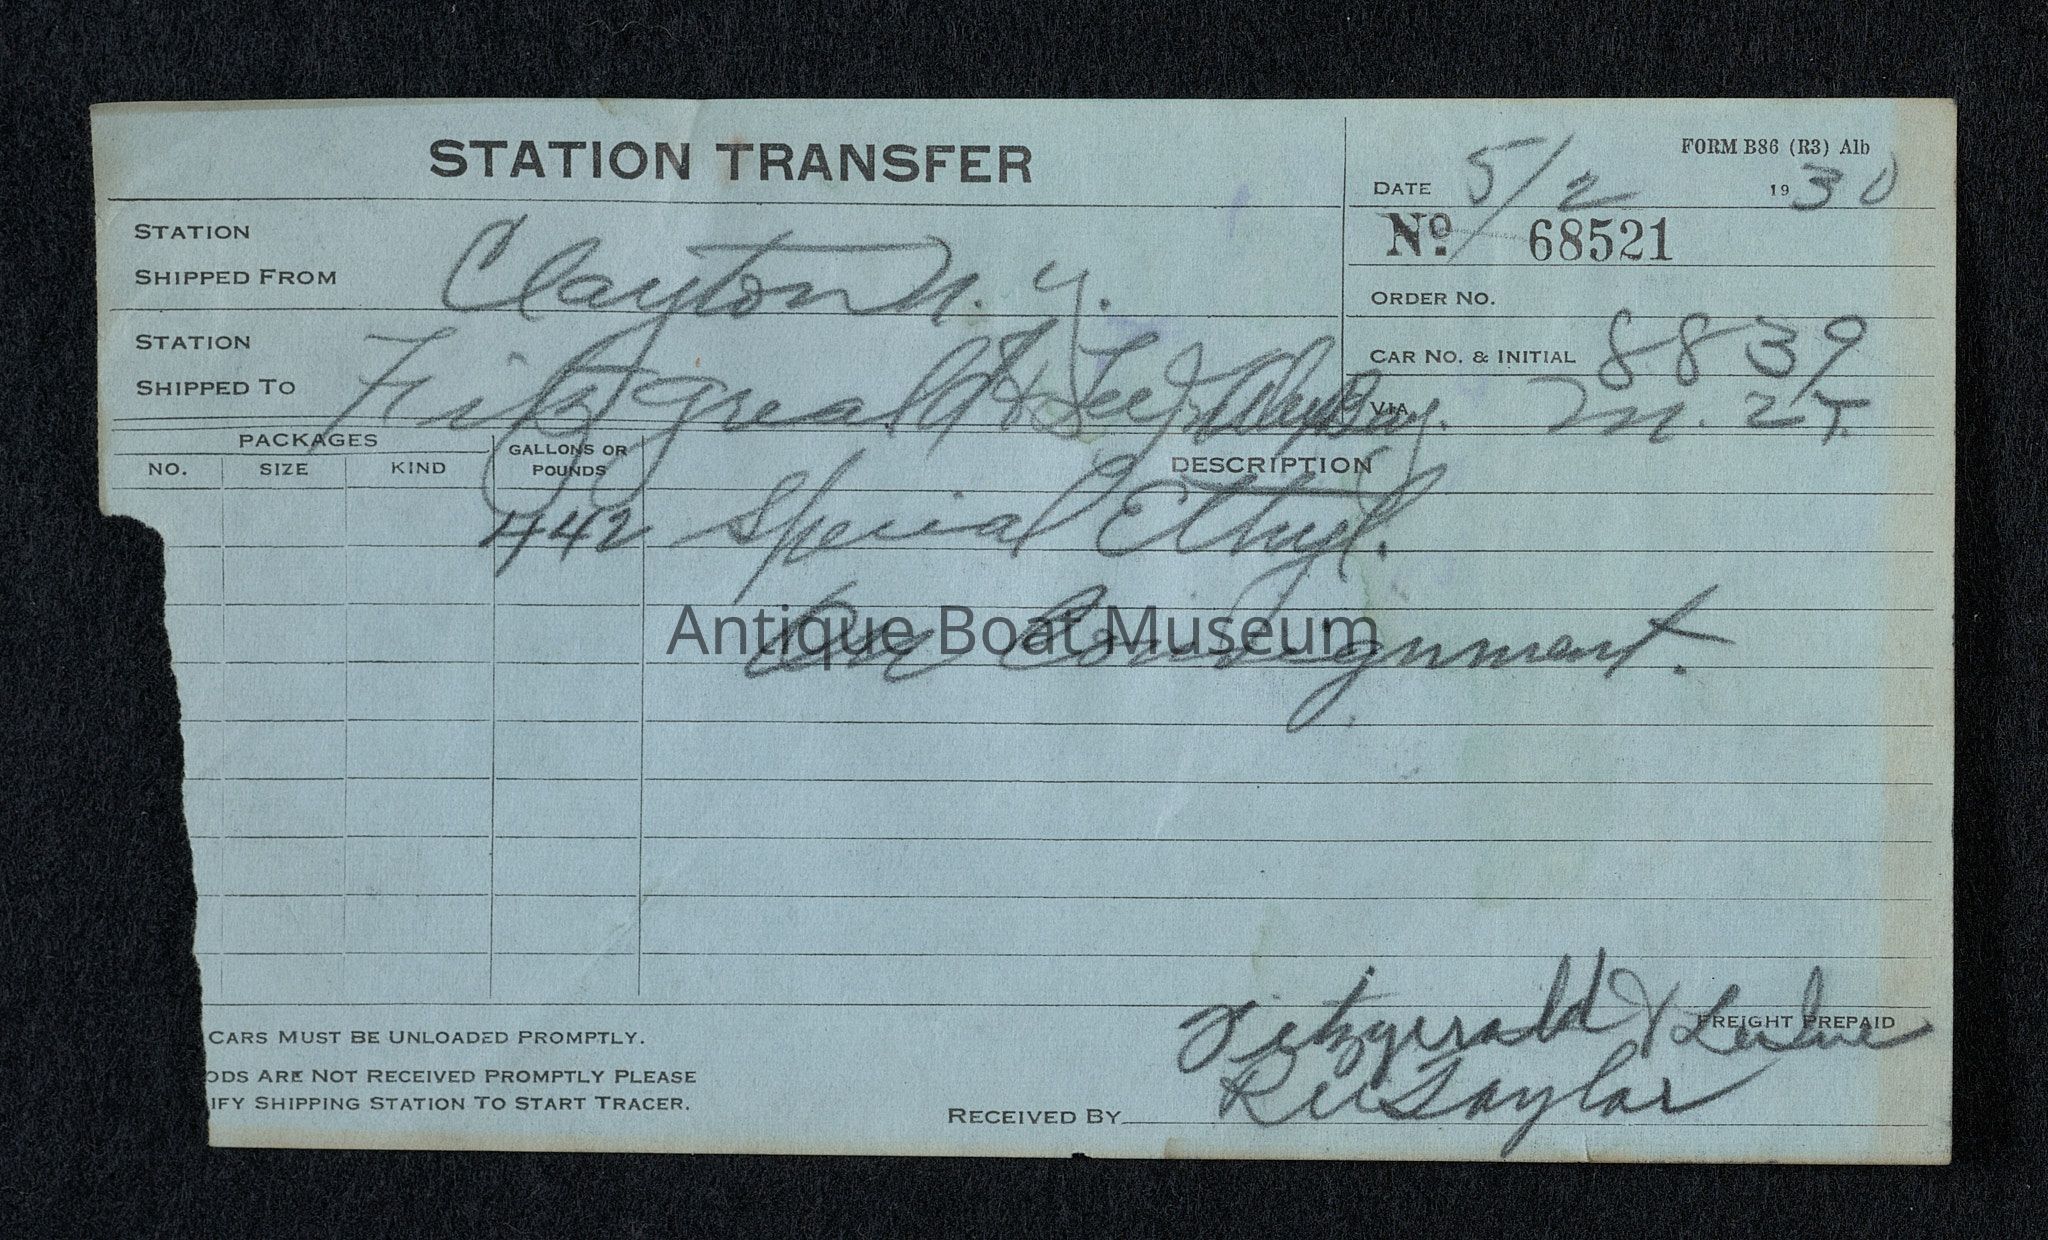 STATION TRANSFER
FORM B86 (R3) Alb
DATE 5/2 1930
No. 68521
STATION
SHIPPED FROM Clayton N. Y.
ORDER NO.
STATION
SHIPPED TO Fitzgreald & Lee Alex Bay.
CAR NO. & INITIAL 8839
VIA M. T.
PACKAGES
NO. SIZE KIND GALLONS OR POUNDS DESCRIPTION
442 Special Ethyl.
On Consignment.
Antique Boat Museum
Fitzgerald & Leslie
FREIGHT PREPAID
CARS MUST BE UNLOADED PROMPTLY.
ODS ARE NOT RECEIVED PROMPTLY PLEASE
IFY SHIPPING STATION TO START TRACER.
RECEIVED BY Taylor